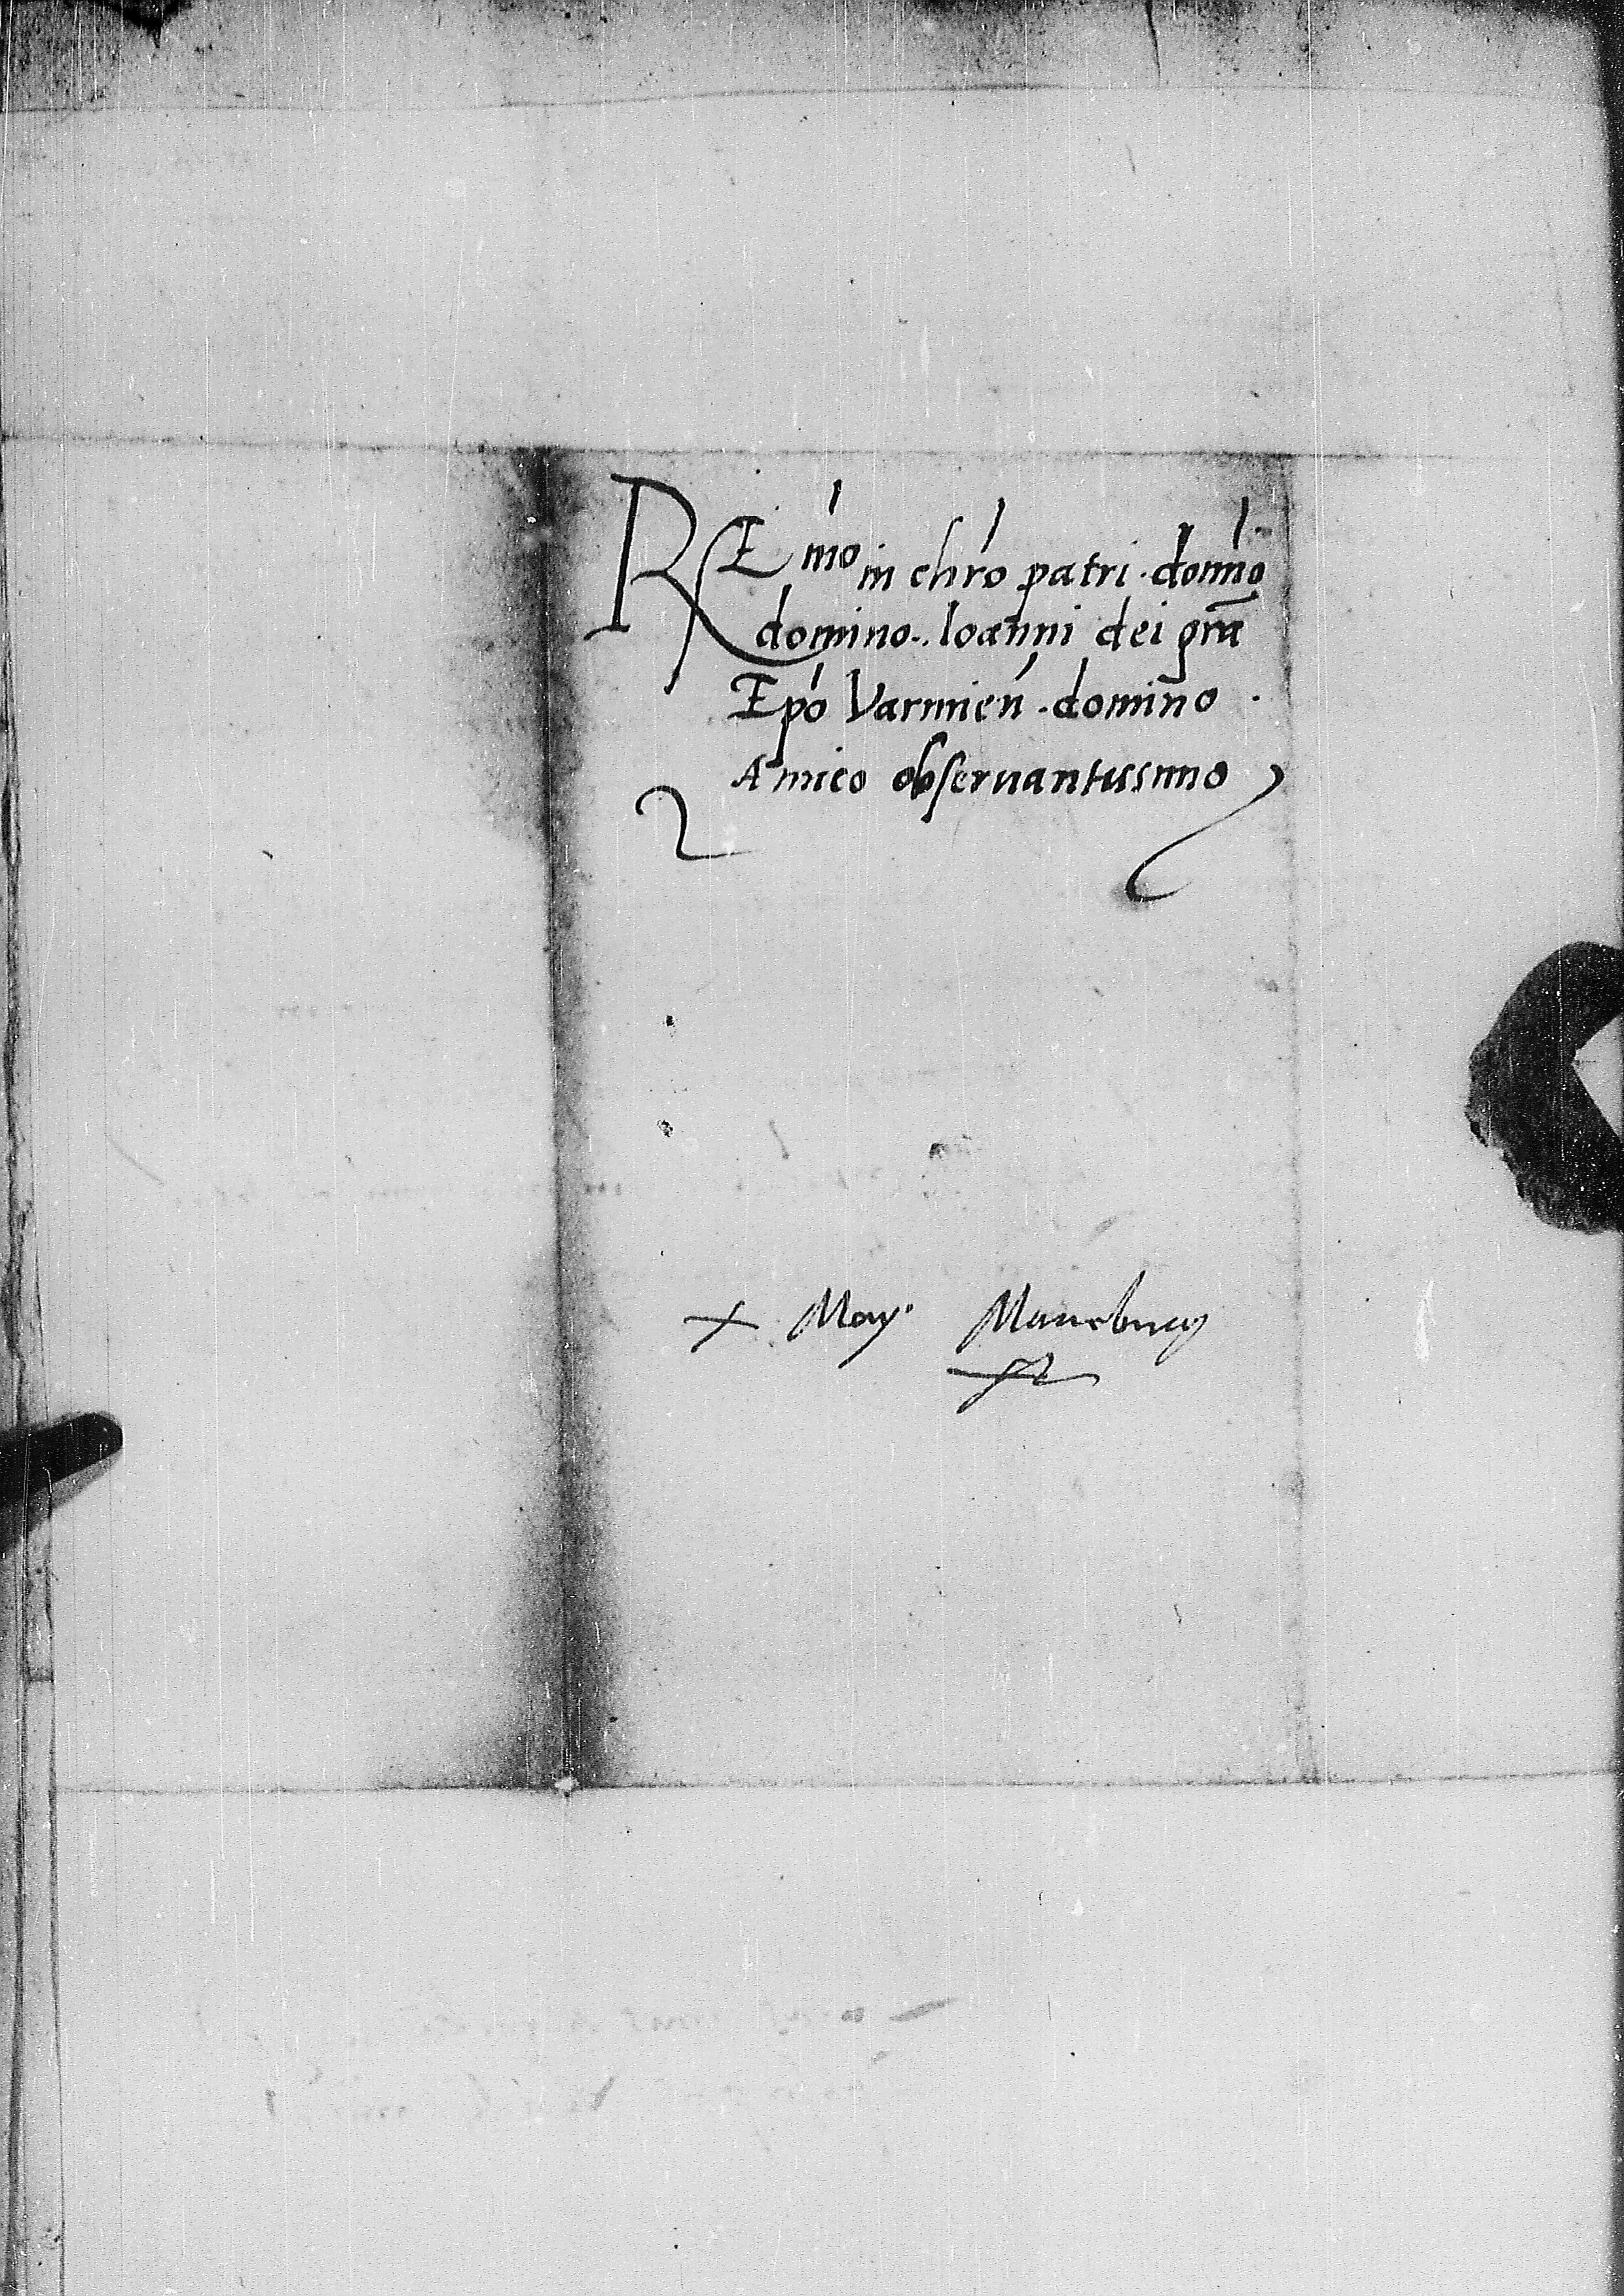 REmo in chro patri . domno
domino . Ioanni dei gra
Epo Varmien . domino .
Amico observantissimo
X May.